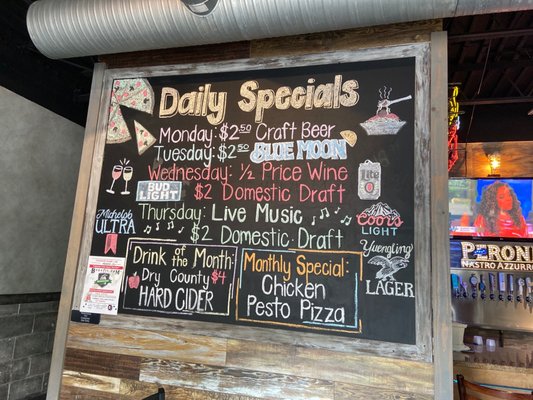 Daily Specials
Monday: $2.50 Craft Beer
Tuesday: $2.50 BLUE MOON
Wednesday: ½ Price Wine
BUD LIGHT
$2 Domestic Draft
lite
Thursday: Live Music
$2 Domestic Draft
Michelob
ULTRA
Coors
LIGHT
Yuengling
LAGER
Drink of the Month:
Dry County $4
HARD CIDER
Monthly Special:
Chicken
Pesto Pizza
PERONI
NASTRO AZZURRO